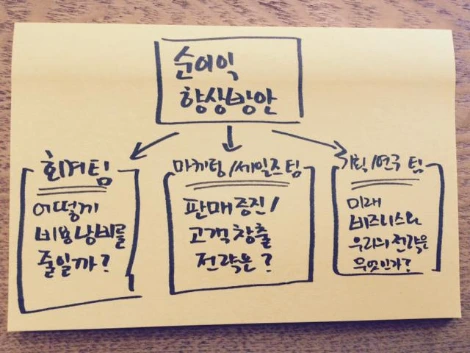 순이익
향상방안
회계팀
어떻게
비용낭비를
줄일까?
마케팅/세일즈팀
판매증진/
고객창출
전략은?
기획/연구팀
미래
비즈니스와
우리의 전략은
무엇인가?